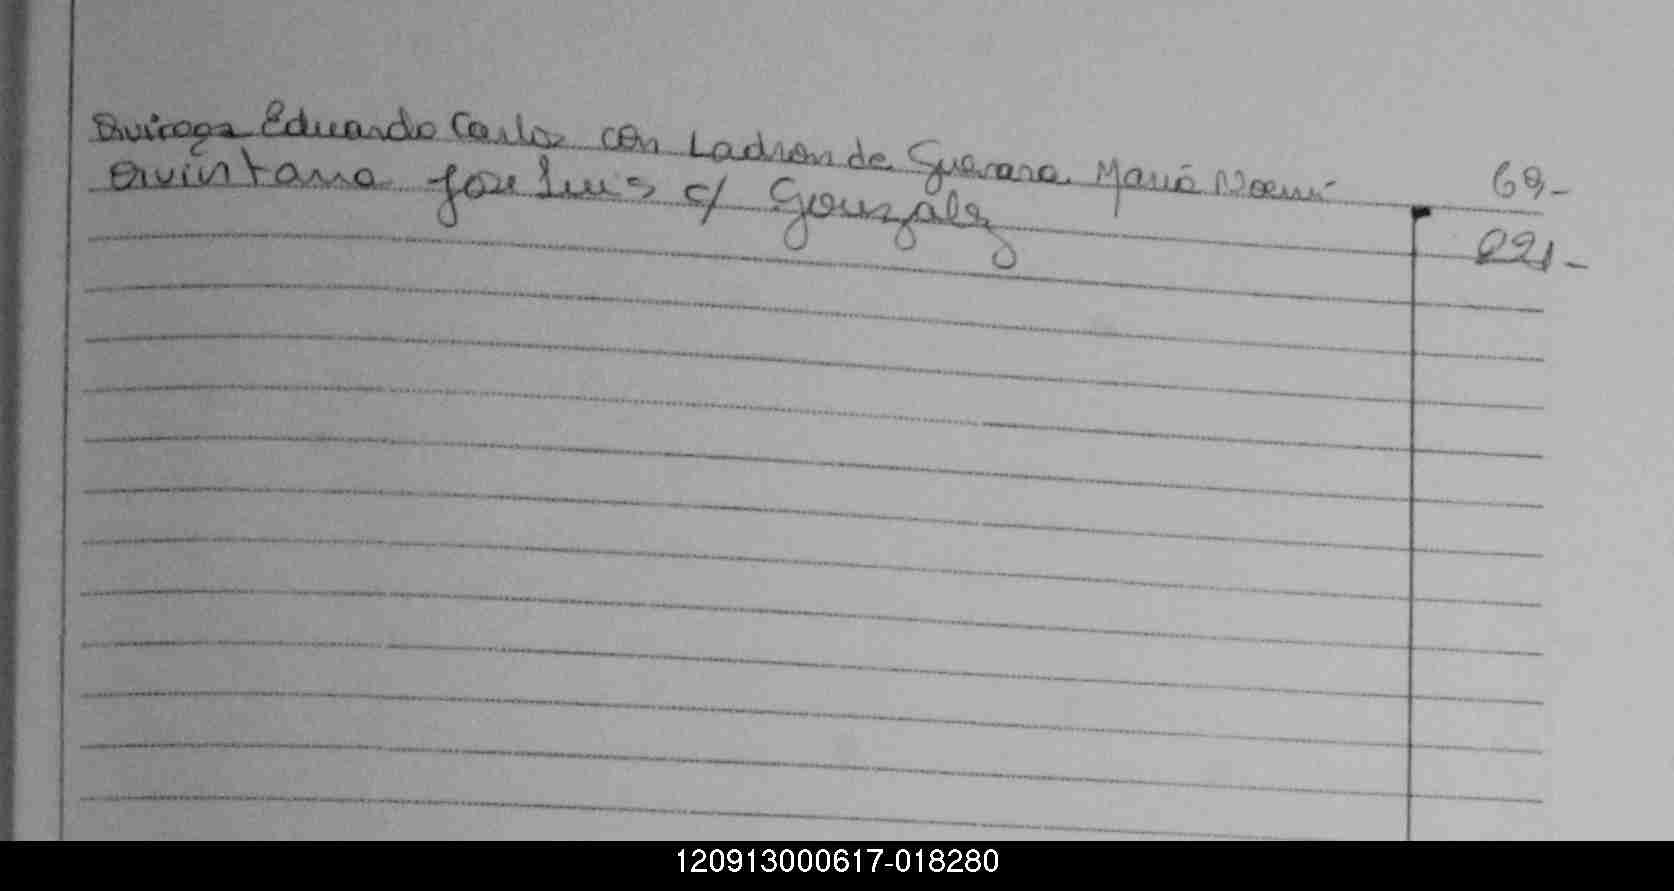 Quiroga Eduardo Carlos con Ladron de Guevara Maria Noemi 69-
Quintana Jose Luis c/ Gonzalez 221-
120913000617-018280